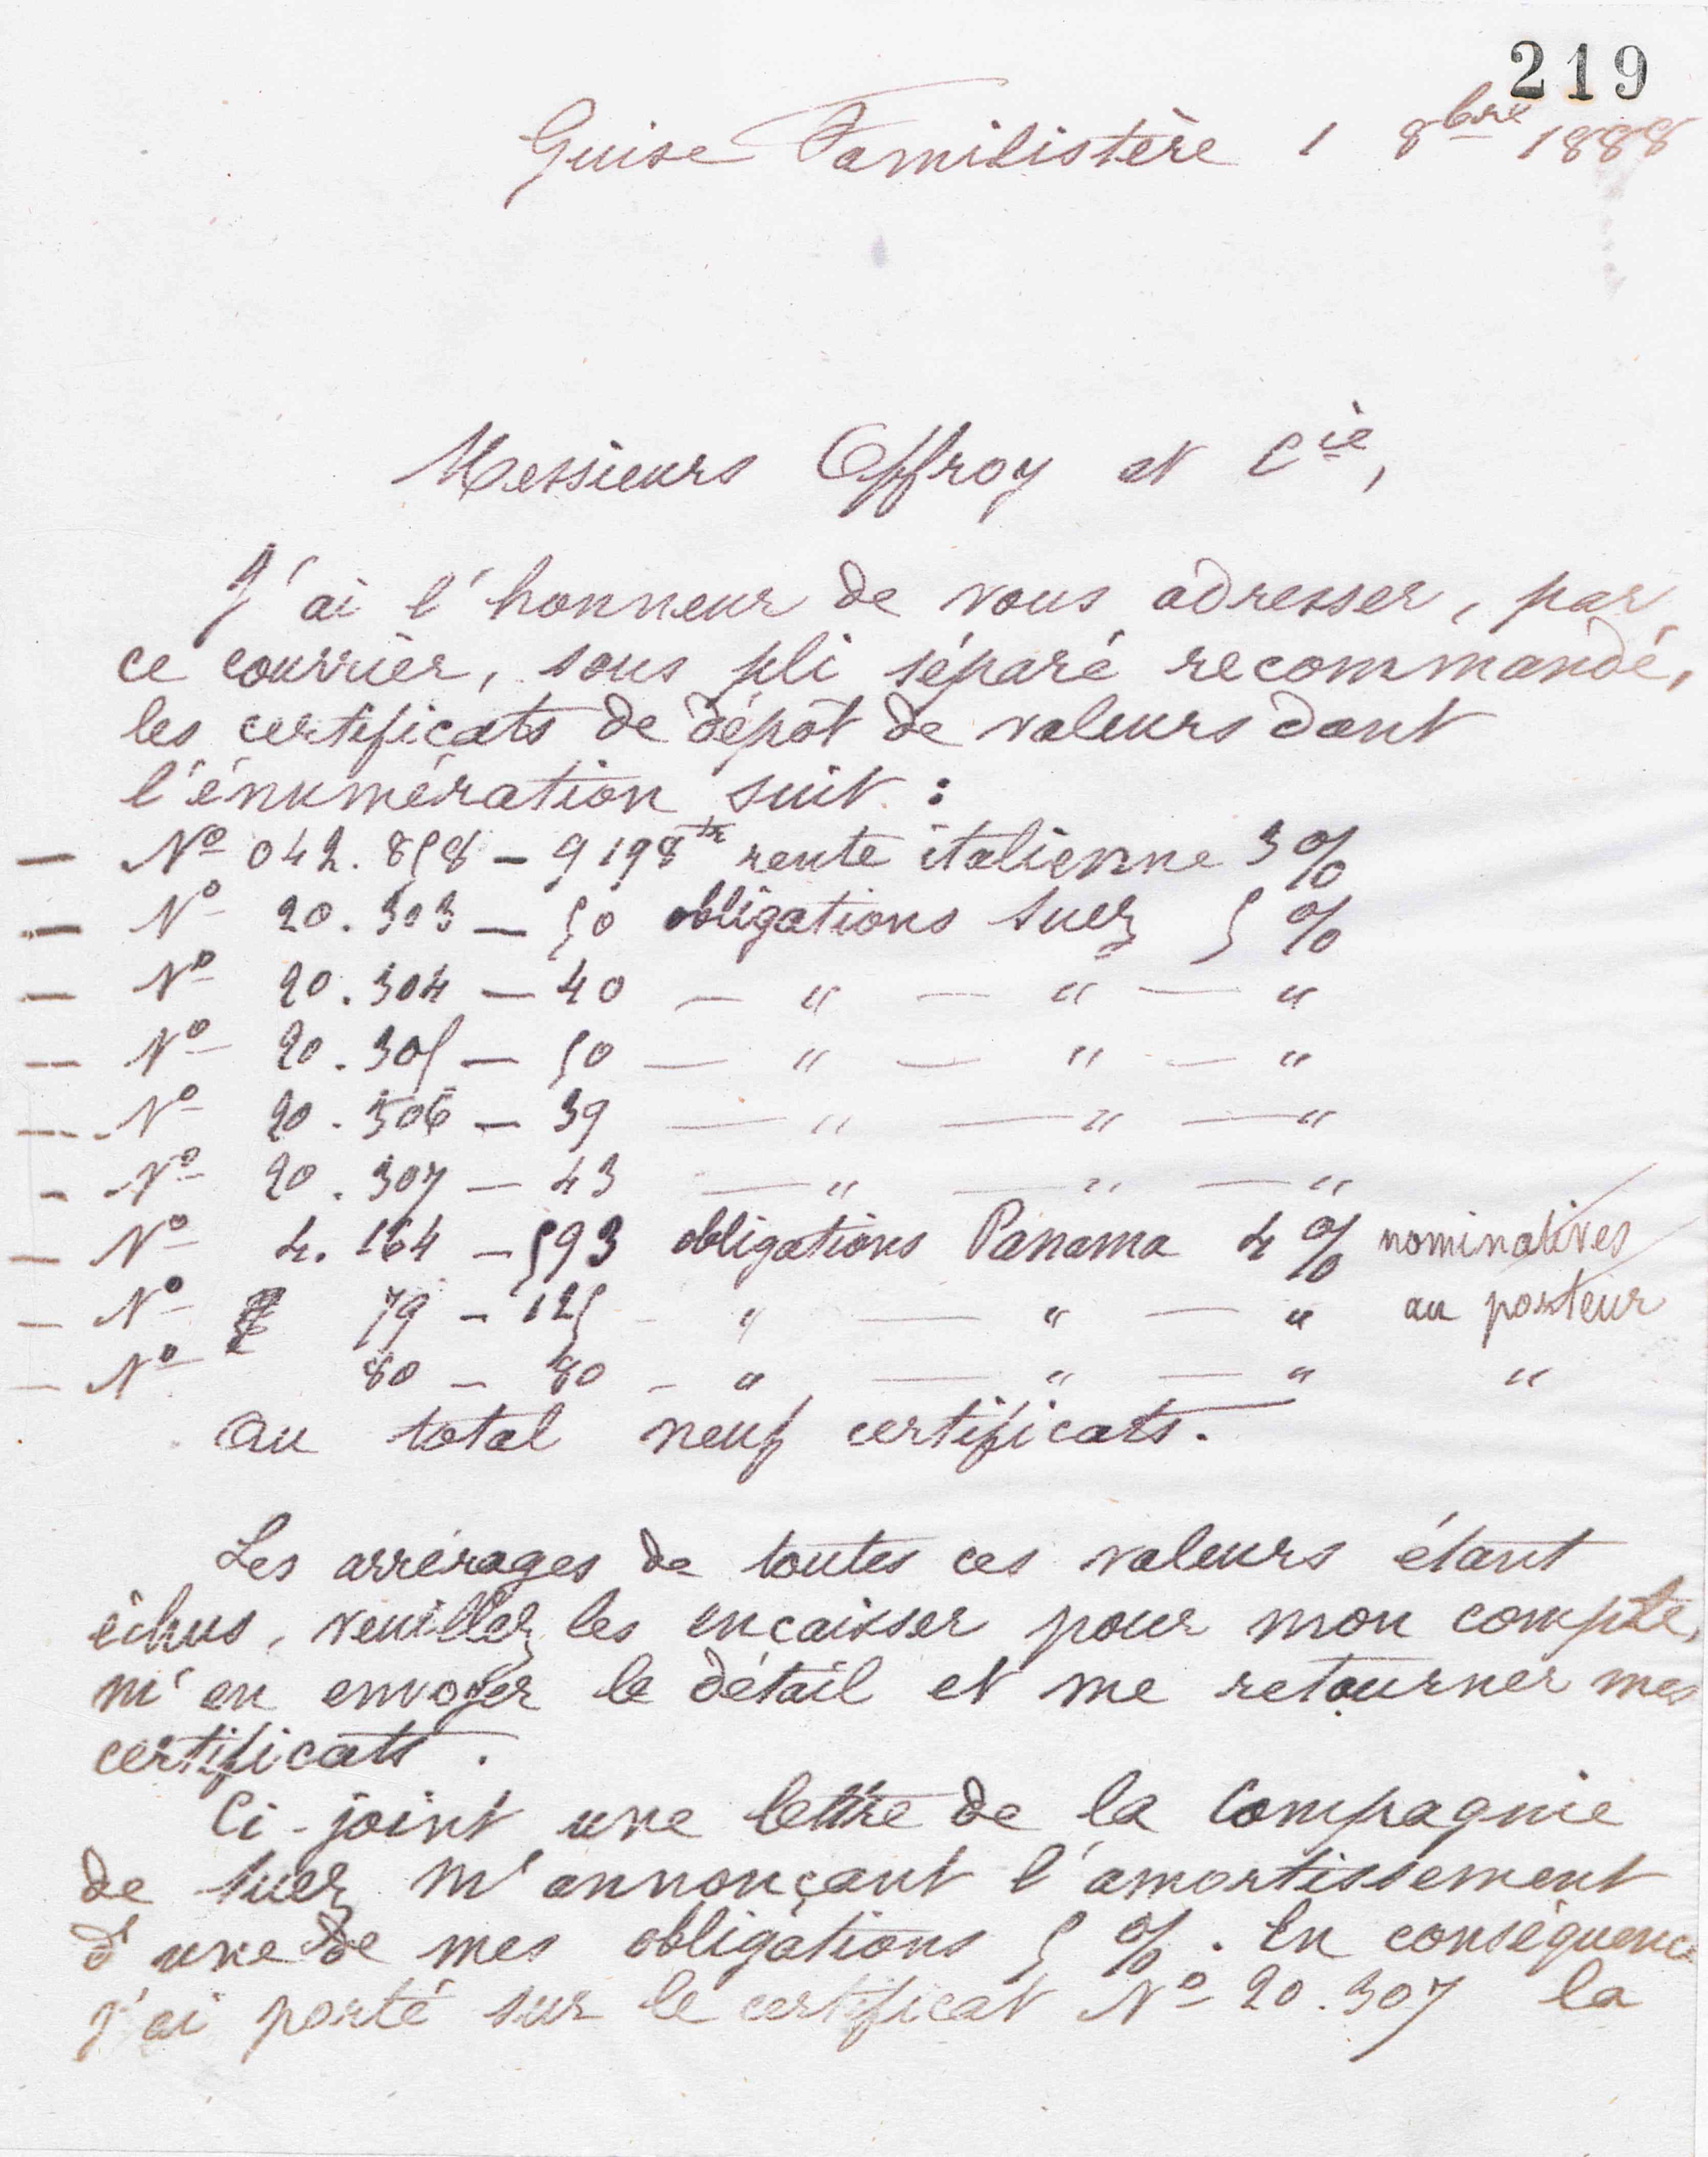 219
Guise Familistère 1 8bre 1888
Messieurs Offroy et Cie,
J'ai l'honneur de vous adresser, par
ce courrier, sous pli séparé recommandé,
les certificats de dépôt de valeurs dont
l'énumération suit :
— No 042.858 — 9198 rente italienne 3 %
— No 20.303 — 50 obligations Suez 5 %
— No 20.304 — 40 — " — " — "
— No 20.305 — 50 — " — " — "
— No 20.306 — 39 — " — " — "
— No 20.307 — 43 — " — " — "
— No 4.164 — 593 obligations Panama 4 % nominatives
— No 79 — 125 — " — " — " au porteur
— No 80 — 80 — " — " — " "
au total neuf certificats.
Les arrérages de toutes ces valeurs étant
échus, veuillez les encaisser pour mon compte,
m'en envoyer le détail et me retourner mes
certificats.
Ci-joint une lettre de la Compagnie
de Suez m'annonçant l'amortissement
d'une de mes obligations 5 %. En conséquence
j'ai porté sur le certificat No 20.307 la